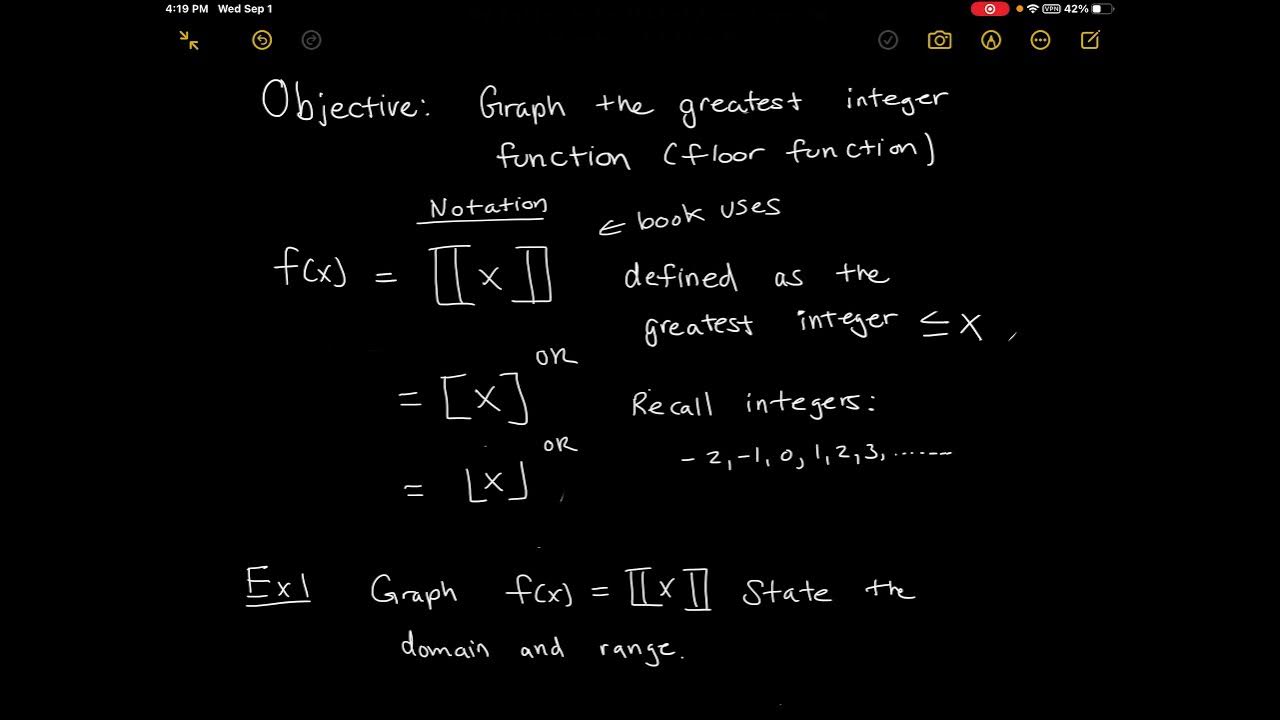 4:19 PM Wed Sep 1
VPN 42%
Objective: Graph the greatest integer
function (floor function)
Notation
← book uses
f(x) = ⟦x⟧ defined as the
greatest integer ≤ x
= [x] OR
Recall integers:
-2, -1, 0, 1, 2, 3, .......
= ⌊x⌋ OR
Ex1 Graph f(x) = ⟦x⟧ State the
domain and range.